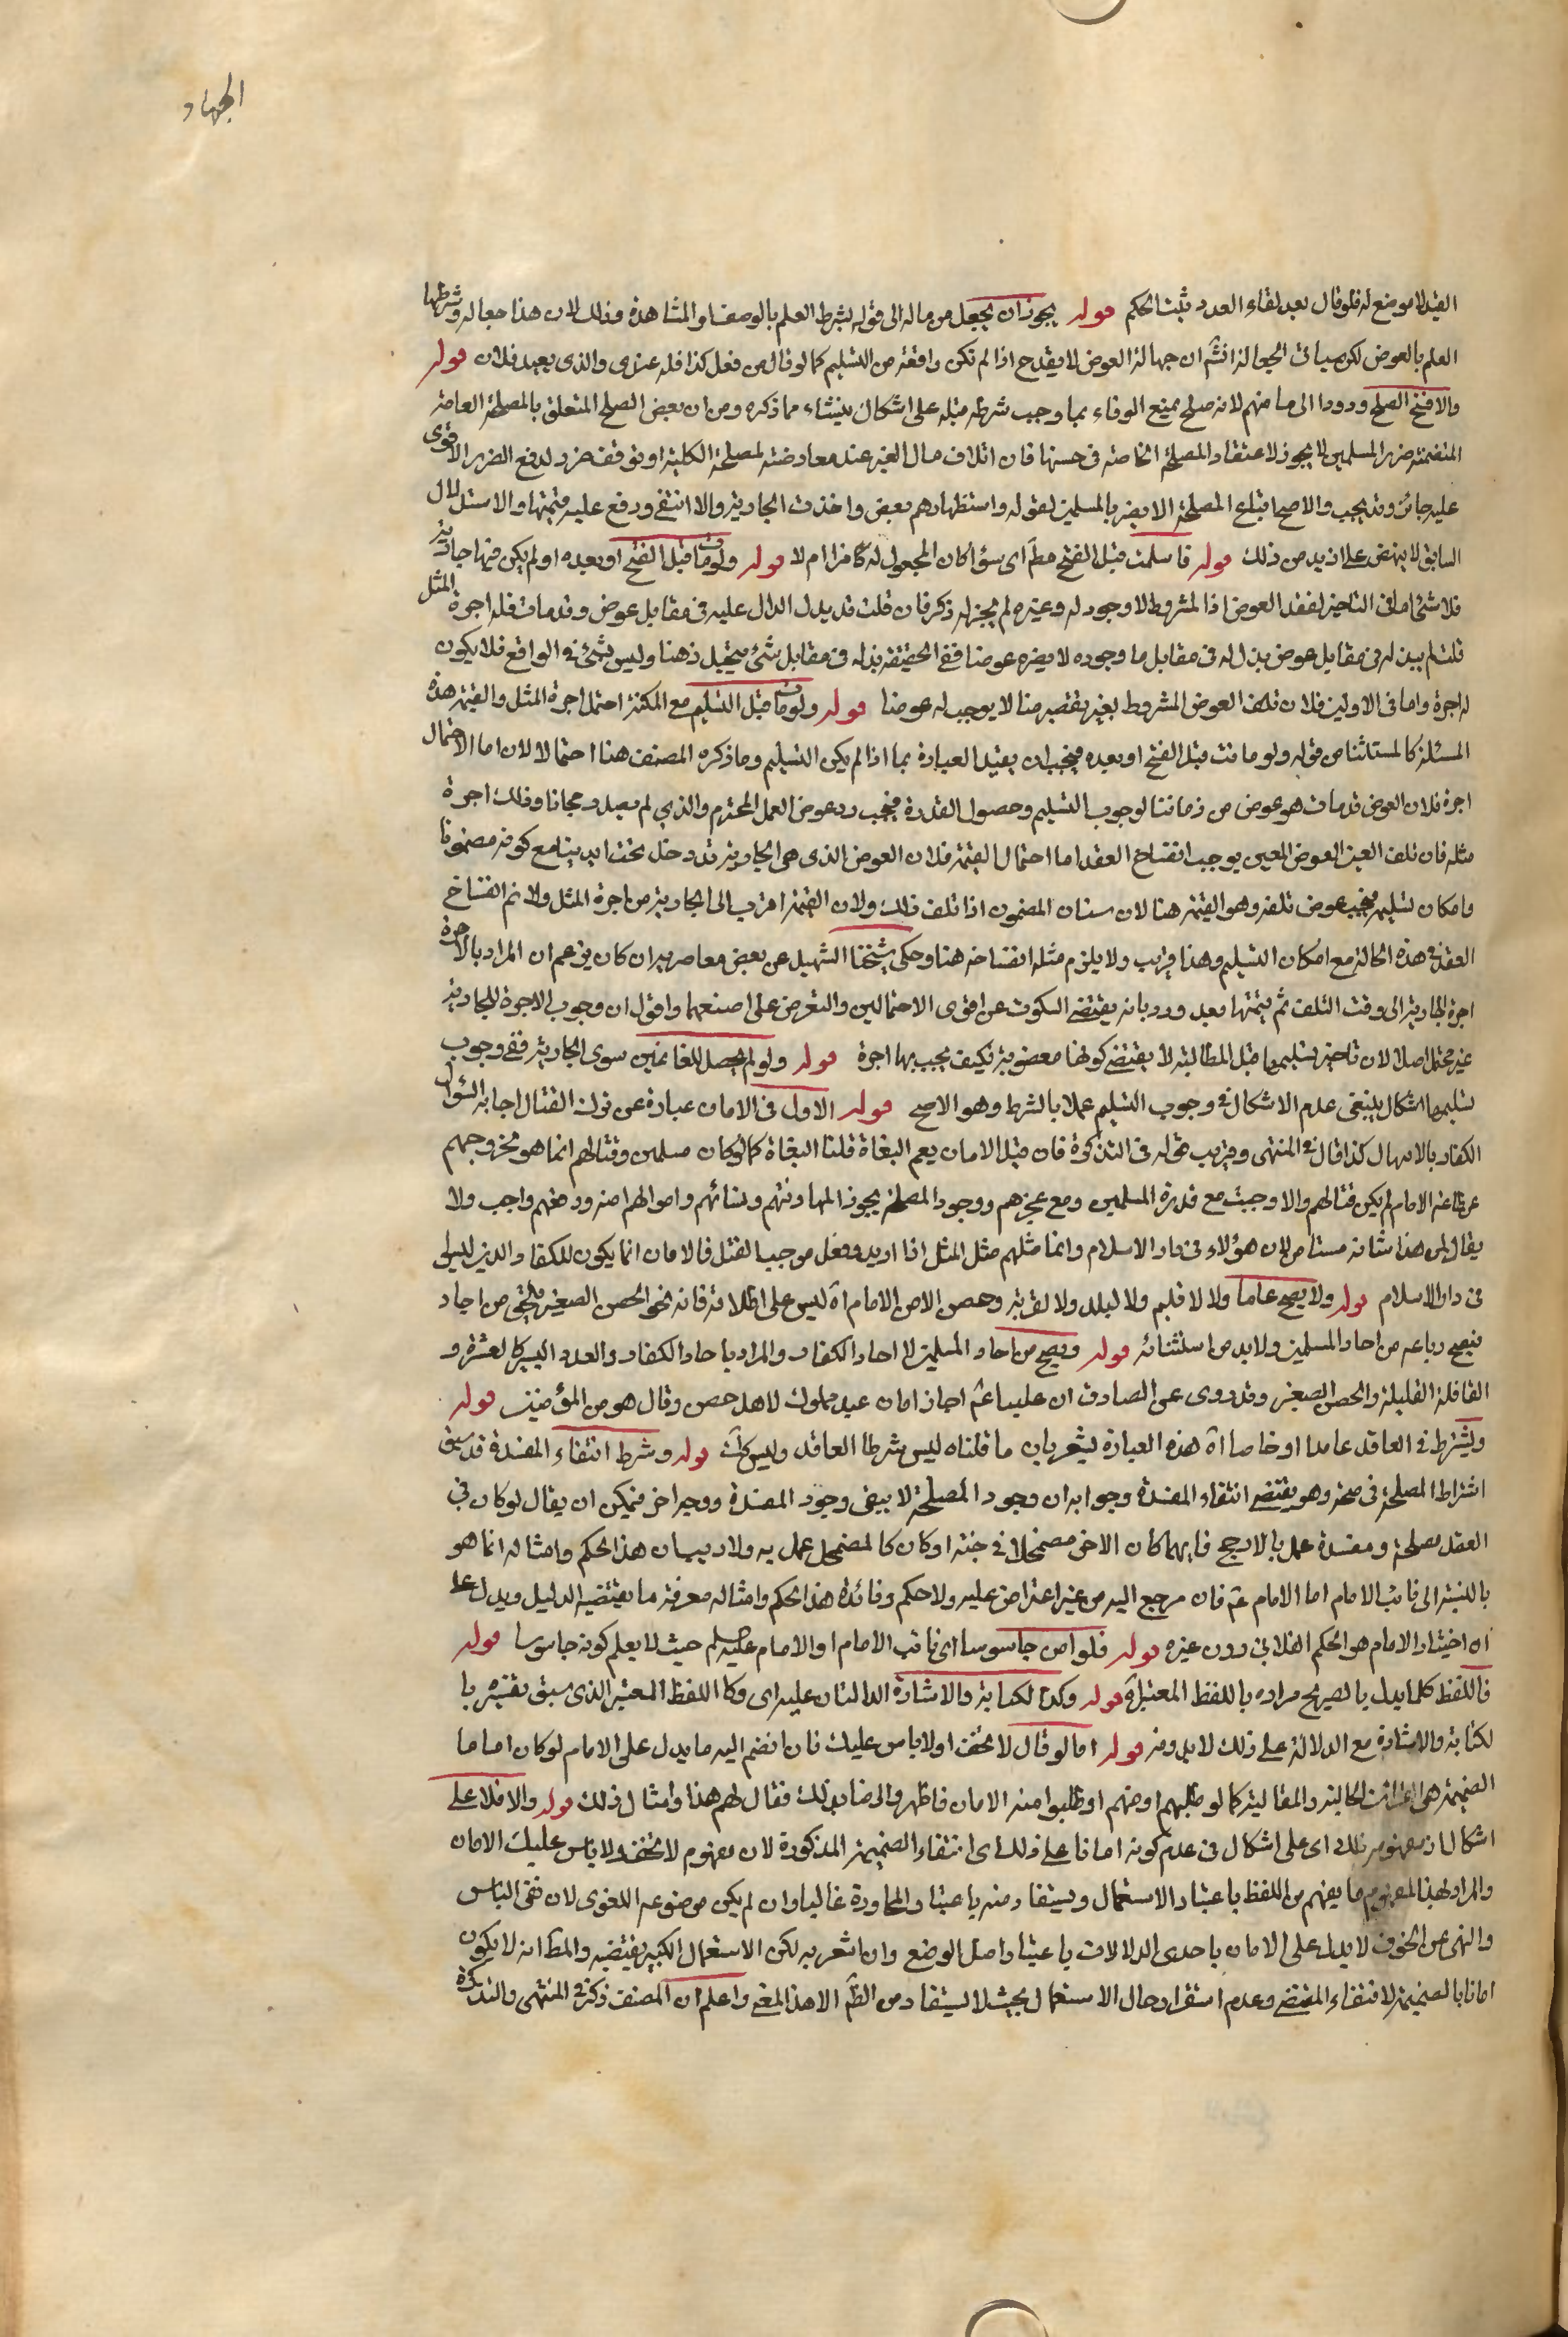 الجهاد
القيد لا موضع له فلو قال بعد لقاء العدد ثبت الحكم قوله يجوز ان يجعل من ماله الى قوله بشرط العلم بالوصف او المشاهدة وذلك لان هذا جعاله وشرطها
العلم بالعوض لكن سياتى فى الجعالة انشم ان جهالة العوض لا يقدح اذا لم تكن رافعة من التسليم كما لو قال من فعل كذا فله عندى والذى يعيد فلان قوله
والا فسخ الصلح وردوا الى مامنهم لانه صلح يمنع الوفاء بما وجب شرطه قبله على اشكال ينشاء مما ذكره ومن ان بعض الصلح المتعلق بالمصلحة العامة
المتضمنة ضرر المسلمين لا يجوز لاعتقاد المصلحة الخاصة فى حسنها فان اتلاف مال الغير عند معارضته لمصلحة الكلية او توقف ضرر لدفع الضرر الاقوى
عليه جائز وقد يجب والاصح اتباع المصلحة الا يضر بالمسلمين لقوله واستظهارهم بعض واخذت الجارية والا انتفى ودفع عليه قيمتها والاستدلال
السابق لا ينهض على ازيد من ذلك قوله فاسلمت قبل الفتح مطم اى سواء كان المجعول له كافرا ام لا قوله ولو ماتت قبل الفتح او بعده او لم يكن فيها جارية
فلا شئ اما فى التاخير لفقد العوض اذ المشروط لا وجود له وغيره لم يجز له ذكر فان قلت قد يدل الدال عليه فى مقابل عوض وقد مات فله اجرة المثل
قلت لم يبن له فى مقابل عوض بذل له فى مقابل ما وجوده لا يضره عوضا ففى الحقيقة بذله فى مقابل شئ يتخيل ذهنا وليس بشئ فى الواقع فلا يكون
له اجرة واما فى الاولين فلان تلف العوض المشروط بغير تقصير منا لا يوجب له عوضا قوله ولو ماتت قبل التسليم مع المكنة احتمل اجرة المثل والقيمة هذه
المسئلة كالمستثنا من قوله ولو ماتت قبل الفتح او بعده فيجب ان يقيد العبارة بما اذا لم يكن التسليم وما ذكره المصنف هنا احتمالا لان اما الاحتمال
اجرة فلان العوض قد مات هو عوض من ذمتنا لوجوب التسليم وحصول القدرة فيجب رد عوض العمل المحترم والذى لم يصدر مجانا وذلك اجرة
مثله فان تلف العين العوض المعين يوجب انفساخ العقد اما احتمال القيمة فلان العوض الذى هى الجارية قد دخل تحت ايدينا مع كونه مضمونا
وامكان تسليمه فيجب عوض تلفه وهو القيمة هنا لان ستان المضمون اذا تلف ذلك ولان القيمة اقرب الى الجارية من اجرة المثل ولانم انفساخ
العقد فى هذه الحالة مع امكان التسليم وهذا قريب ولا يلزم مثله انفساخه هنا وحكى شيخنا الشهيد عن بعض معاصريه ان كان يزعم ان المراد بالاجرة
اجرة الجارية الى وقت التلف ثم قيمتها بعد ورد بانه يقتضى السكوت عن اقوى الاحتمالين والتعرض على اضعفهما واقول ان وجوب الاجرة للجارية
غير محتمل اصلا لان تاخير تسليمها قبل المطالبة لا يقتضى كونها مغصوبة فكيف يجب بها اجرة قوله ولو لم يحصل للغانمين سوى الجارية ففى وجوب
تسليمها اشكال ينبغى عدم الاشكال فى وجوب التسليم عملا بالشرط وهو الاصح قوله الاول فى الامان عبارة عن ترك القتال اجابة لسؤال
الكفار بالامهال كذا قال فى المنتهى وقريب قوله فى التذكرة فان قيل الامان يعم البغاة قلنا البغاة كما لو كان مسلمين وقتالهم انما هو لخروجهم
عن طاعة الامام لم يكن قتالهم والا وجب مع قدرة المسلمين ومع عجزهم ووجود المصلحة يجوز المهادنتهم ونسائهم واموالهم امنه ودفعهم واجب ولا
يقال لمن هذا شانه مستامن لان هؤلاء فى دار الاسلام وانما مثلهم مثل المثل اذا اريد وفعل موجب القتل فالامان انما يكون للكفار والذين ليسوا
فى دار الاسلام قوله ولا يصح عاما ولا لاقليم ولا لبلد ولا لقرية وحصن الا من الامام اه ليس على اطلاقه فانه نحو الحصن الصغير يلحق من احاد
فيصح رباعه من احاد المسلمين ولا بد من استثنائه قوله ويصح من احاد المسلمين لا احاد الكفار والمراد باحاد الكفار والعدد اليسير كالعشرة و
القافلة القليلة والحصن الصغير وقد روى عن الصادق ان عليا عم اجاز امان عبد مملوك لاهل حصن وقال هو من المؤمنين قوله
ويشترط فى العاقد عاما او خاصا اه هذه العبارة يشعر بان ما قلناه ليس شرطا العاقد وليس كك قوله وشرط انتفاء المفسدة قد سبق
اشتراط المصلحة فى صحته وهو يقتضى انتفاء المفسدة وجوابه ان وجود المصلحة لا ينفى وجود المفسدة ووجه اخر فيمكن ان يقال لو كان فى
العقد مصلحة ومفسدة عمل بالارجح فايهما كان الاخر مضمحلا فى جنبه او كان كالمضمحل عمل به ولا ريب ان هذا الحكم وامثاله انما هو
بالنسبة الى نائب الامام اما الامام عم فان مرجع اليه من غير اعتراض عليه ولا حكم وفائدة هذا الحكم وامثاله معرفة ما يقتضيه الدليل ويدل على
ان اختيار الامام هو الحكم الفلانى دون غيره قوله فلو امن جاسوسا اى نائب الامام او الامام عليه سلم حيث لا يعلم كونه جاسوسا قوله
فاللفظ كلما يدل بالصريح مراده باللفظ المعتبر اه قوله وكذا الكتابة والاشارة الدالتان عليه اى وكا اللفظ المعتبر الذى سبق تفسيره با
لكتابة والاشارة مع الدلالة على ذلك لابد منه قوله اما لو قال لا تخف او لا باس عليك فان انضم اليه ما يدل على الامام لو كان اماما
الضميمة هى القرائن الحالية والمقالية كما لو طلبهم او منهم او طلبوا منه الامان فاظهر والرضا بذلك فقال لهم هذا وامثال ذلك قوله والا فلا على
اشكال اذ مفهومه ذلك اى على اشكال فى عدم كونه امانا على ذلك اى انتفاء الضميمة المذكورة لان مفهوم لا تخف ولا باس عليك الامان
والمراد بهذا المفهوم ما يفهم من اللفظ باعتبار الاستعمال ويستفاد منه باعتبار والمحاورة غالبا وان لم يكن موضوعه اللغوى لان نفى الباس
والنهى عن الخوف لا يدل على الامان باحدى الدلالات باعتبار اصل الوضع وان اشعر به لكن الاستعمال الكثير يقتضيه والمظ انه لا يكون
امانا بالضميمة لانتفاء المقتضى وعدم استقرار حال الاستعمال بحيث لا يستفاد من الظم الا هذا المعنى واعلم ان المصنف ذكر فى المنتهى والتذكرة